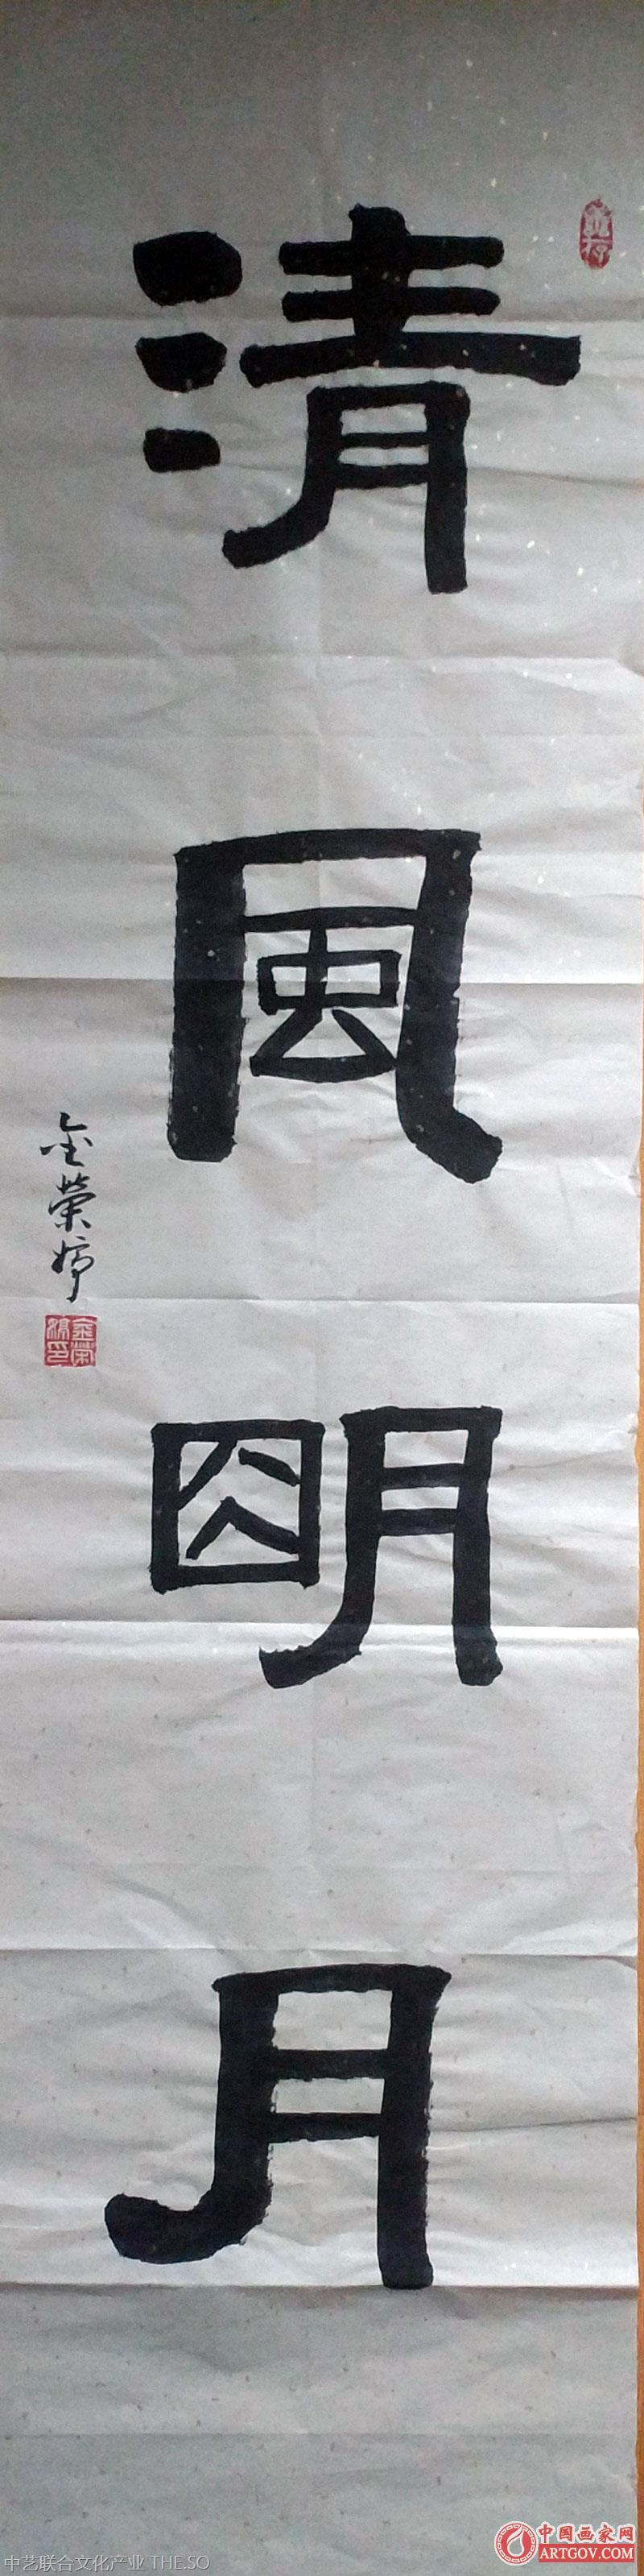 清風朙月
金榮婷
金榮婷印
中国画家网
ARTGOV.COM
中艺联合文化产业 THE.SO